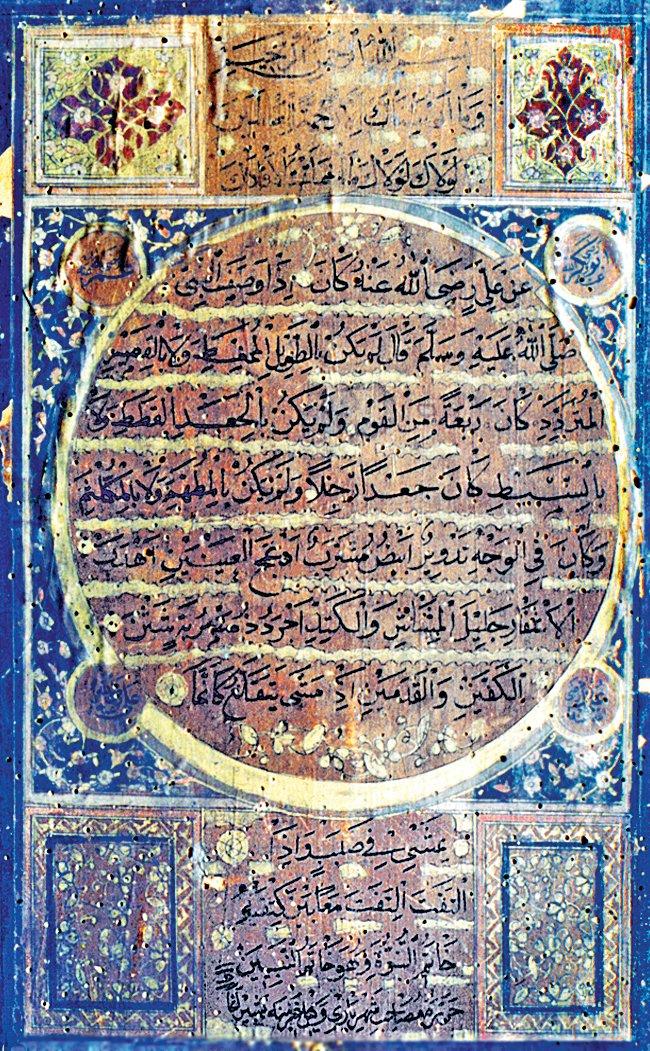 بسم الله الرحمن الرحيم
وما ارسلناك الا رحمة للعالمين
لولاك لولاك لما خلقت الافلاك
ابوبكر
عمر
عن علي رضى الله عنه كان اذا وصف النبي
صلى الله عليه وسلم قال لم يكن بالطويل الممغط ولا بالقصير
المتردد كان ربعة من القوم ولم يكن بالجعد القطط ولا
بالسبط كان جعدا رجلا ولم يكن بالمطهم ولا بالمكلثم
وكان في الوجه تدوير ابيض مشرب ادعج العينين اهدب
الاشفار جليل المشاش والكتد اجرد ذو مسربة شثن
الكفين والقدمين اذا مشى يتقلع كانما
يمشي في صبب واذا
التفت التفت معا بين كتفيه
خاتم النبوة وهو خاتم النبيين